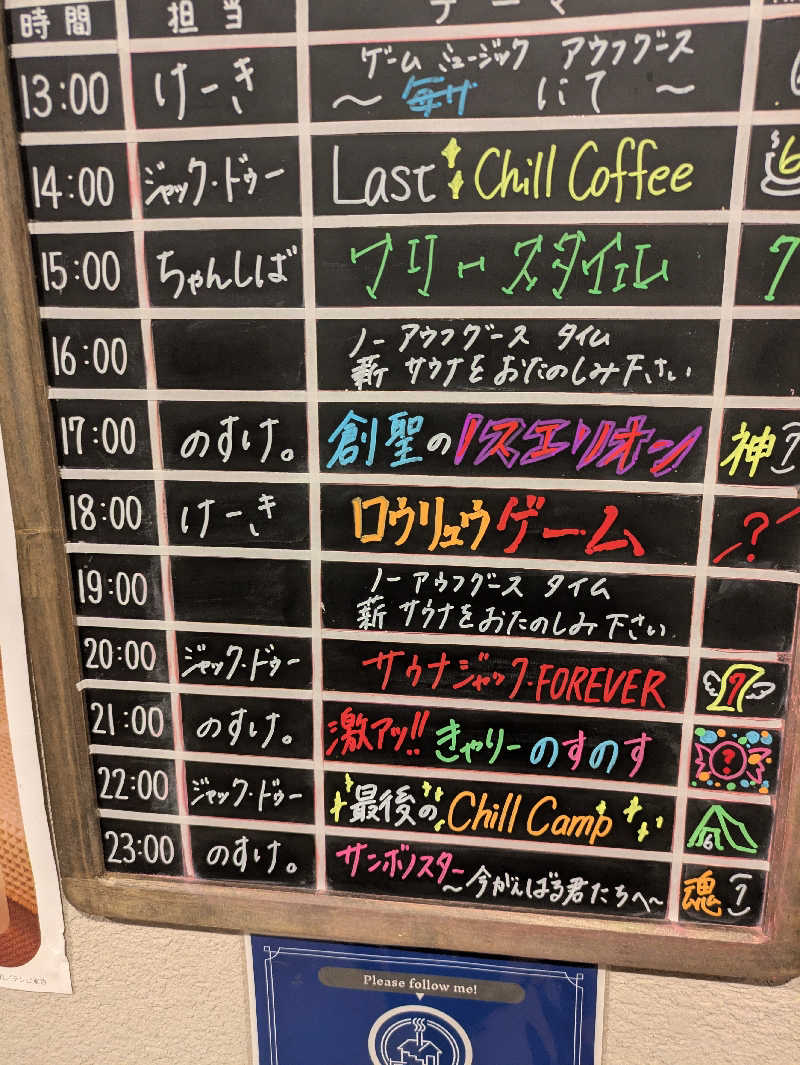 時間 担当 テーマ
13:00 けーき ゲームミュージック アウフグース
〜 毎ザ にて 〜
14:00 ジャック・ドゥー Last Chill Coffee 6
15:00 ちゃんしば フリースタイル 7
16:00 ノーアウフグース タイム
薪 サウナをおたのしみ下さい
17:00 のすけ。 創聖のノスエリオン 神?
18:00 けーき ロウリュウゲーム ?
19:00 ノーアウフグース タイム
薪 サウナをおたのしみ下さい
20:00 ジャック・ドゥー サウナジャック・FOREVER 7
21:00 のすけ。 激アツ!! きゃりーのすのす ?
22:00 ジャック・ドゥー 最後の Chill Camp 6
23:00 のすけ。 サンボノスター
〜今がんばる君たちへ〜 魂?
Please follow me!